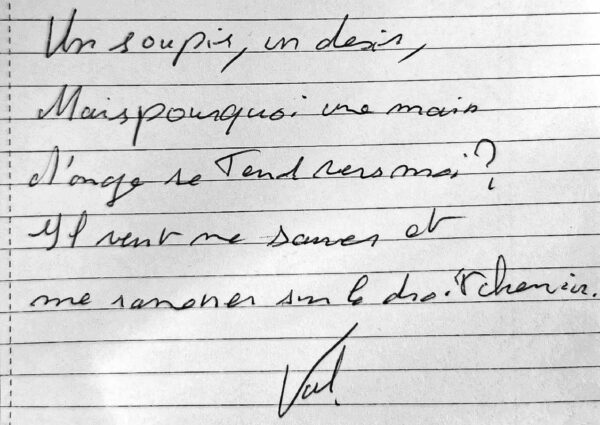 Un soupir, un desir,
Mais pourquoi une main
d'ange se Tend vers moi ?
Il veut me sauver et
me ramener sur le droit chemin.
Val.